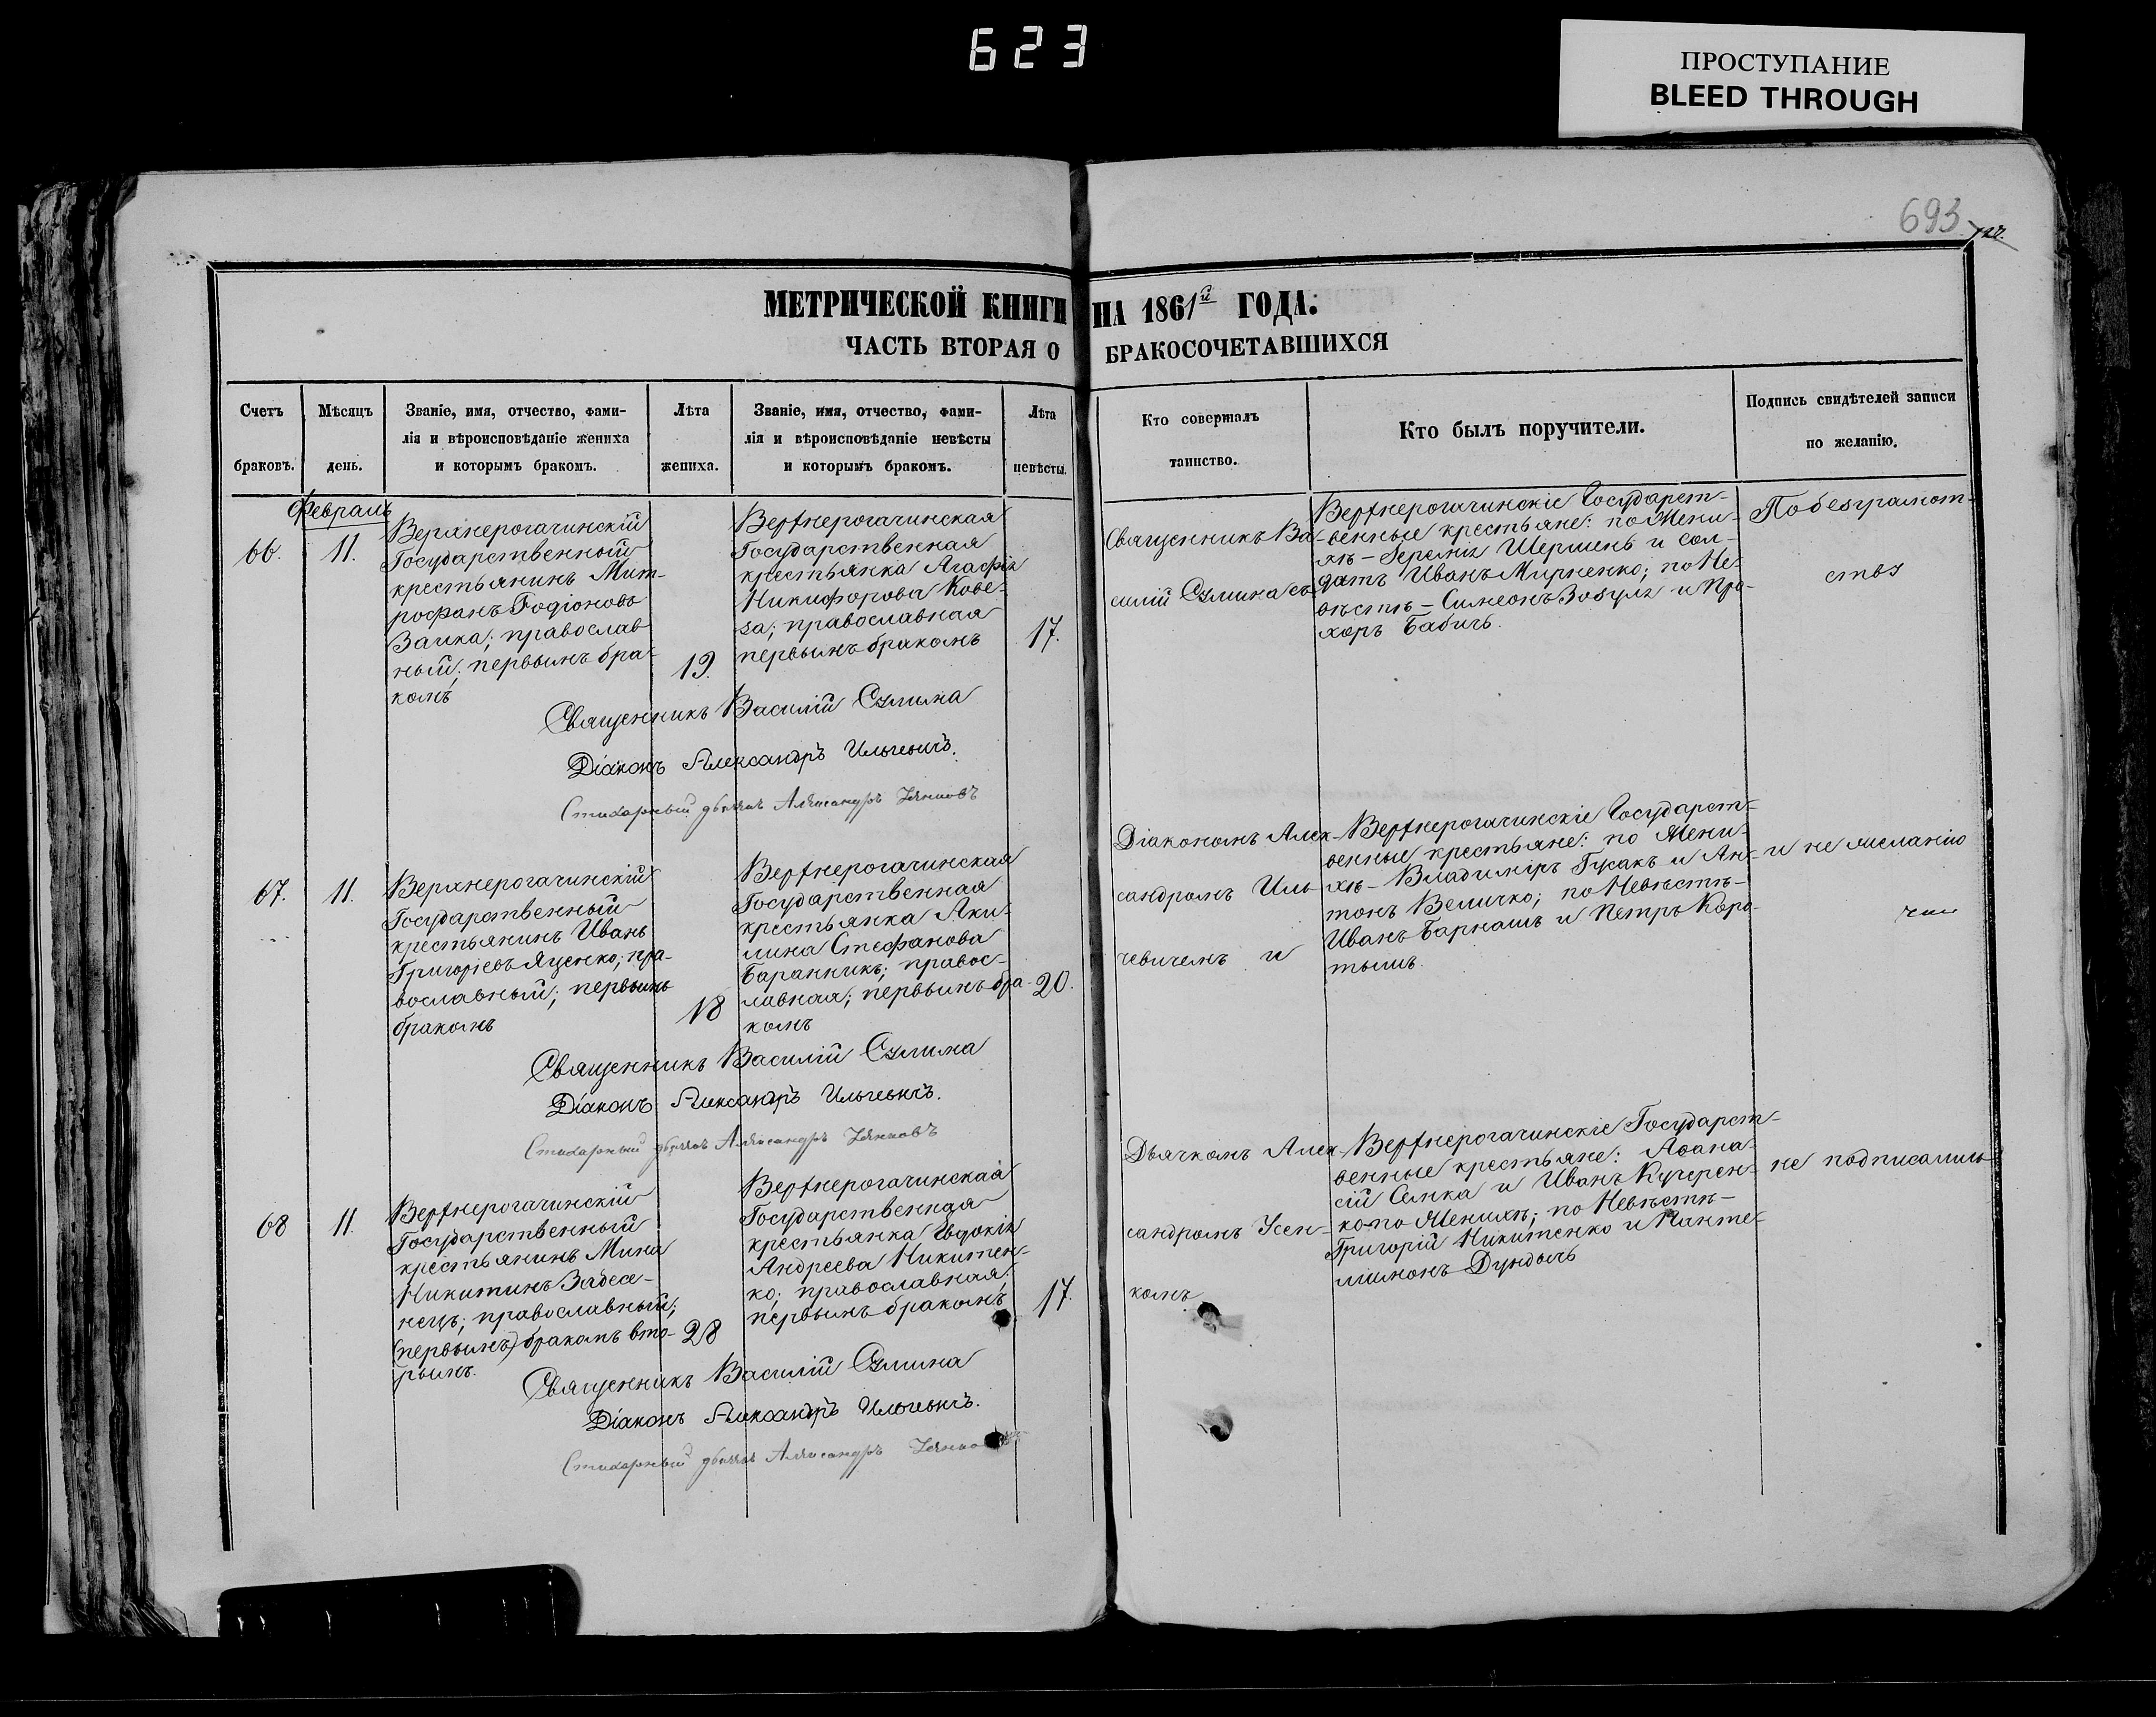 623
ПРОСТУПАНИЕ
BLEED THROUGH
693
МЕТРИЧЕСКОЙ КНИГИ НА 1861й ГОДА.
ЧАСТЬ ВТОРАЯ О БРАКОСОЧЕТАВШИХСЯ
Счетъ
браковъ.
Мѣсяцъ
день.
Званіе, имя, отчество, фами-
лія и вѣроисповѣданіе жениха
и которымъ бракомъ.
Лѣта
жениха.
Званіе, имя, отчество, фами-
лія и вѣроисповѣданіе невѣсты
и которымъ бракомъ.
Лѣта
невѣсты.
Кто совершалъ
таинство.
Кто былъ поручители.
Подпись свидѣтелей записи
по желанію.
Февраль
66.
11.
Верхнерогачинскій
Государственный
крестьянинъ Мит-
рофанъ Родіоновъ
Заика; православ
ный; первымъ бра-
комъ
19.
Верхнерогачинская
Государственная
крестьянка Агафія
Никифорова Кове-
за; православная
первымъ бракомъ
17.
Священникъ Ва-
силій Сулима съ
Верхнерогачинскіе Государст-
венные крестьяне: по Жени-
хѣ – Іеремія Шершень и сол-
датъ Иванъ Мирненко; по Не-
вѣстѣ – Симеонъ Зозуля и Про-
хоръ Бабичъ.
По безграмот-
ству
Священникъ Василій Сулима
Діаконъ Александръ Ильчевичъ.
Стихарный дьячокъ Александръ
67.
11.
Верхнерогачинскій
Государственный
крестьянинъ Иванъ
Григоріевъ Яценко; пра-
вославный; первымъ
бракомъ
18
Верхнерогачинская
Государственная
крестьянка Аки-
лина Стефанова
Баранникъ; правос-
лавная; первымъ бра-
комъ
20.
Діакономъ Алек-
сандромъ Иль-
чевичемъ и
Верхнерогачинскіе Государст-
венные крестьяне: по Жени-
хѣ – Владиміръ Гусакъ и Ан-
тонъ Величко; по Невѣстѣ –
Иванъ Барнашъ и Петръ Коро-
тышъ.
и не желанію
Священникъ Василій Сулима
Діаконъ Александръ Ильчевичъ.
Стихарный дьячокъ Александръ
68
11.
Верхнерогачинскій
Государственный
крестьянинъ Мина
Никитинъ Задесе-
нецъ; православный;
(первымъ) бракомъ вто-
рымъ.
28
Верхнерогачинская
Государственная
крестьянка Евдокія
Андреева Никитен-
ко; православная;
первымъ бракомъ
17.
Дьячкомъ Алек-
сандромъ Усен-
комъ
Верхнерогачинскіе Государст-
венные крестьяне: Афана-
сій Семка и Иванъ Кучерен-
ко по Женихѣ; по Невѣстѣ –
Григорій Никитенко и Панте-
лимонъ Дундычъ
не подписались
Священникъ Василій Сулима
Діаконъ Александръ Ильчевичъ.
Стихарный дьячокъ Александръ